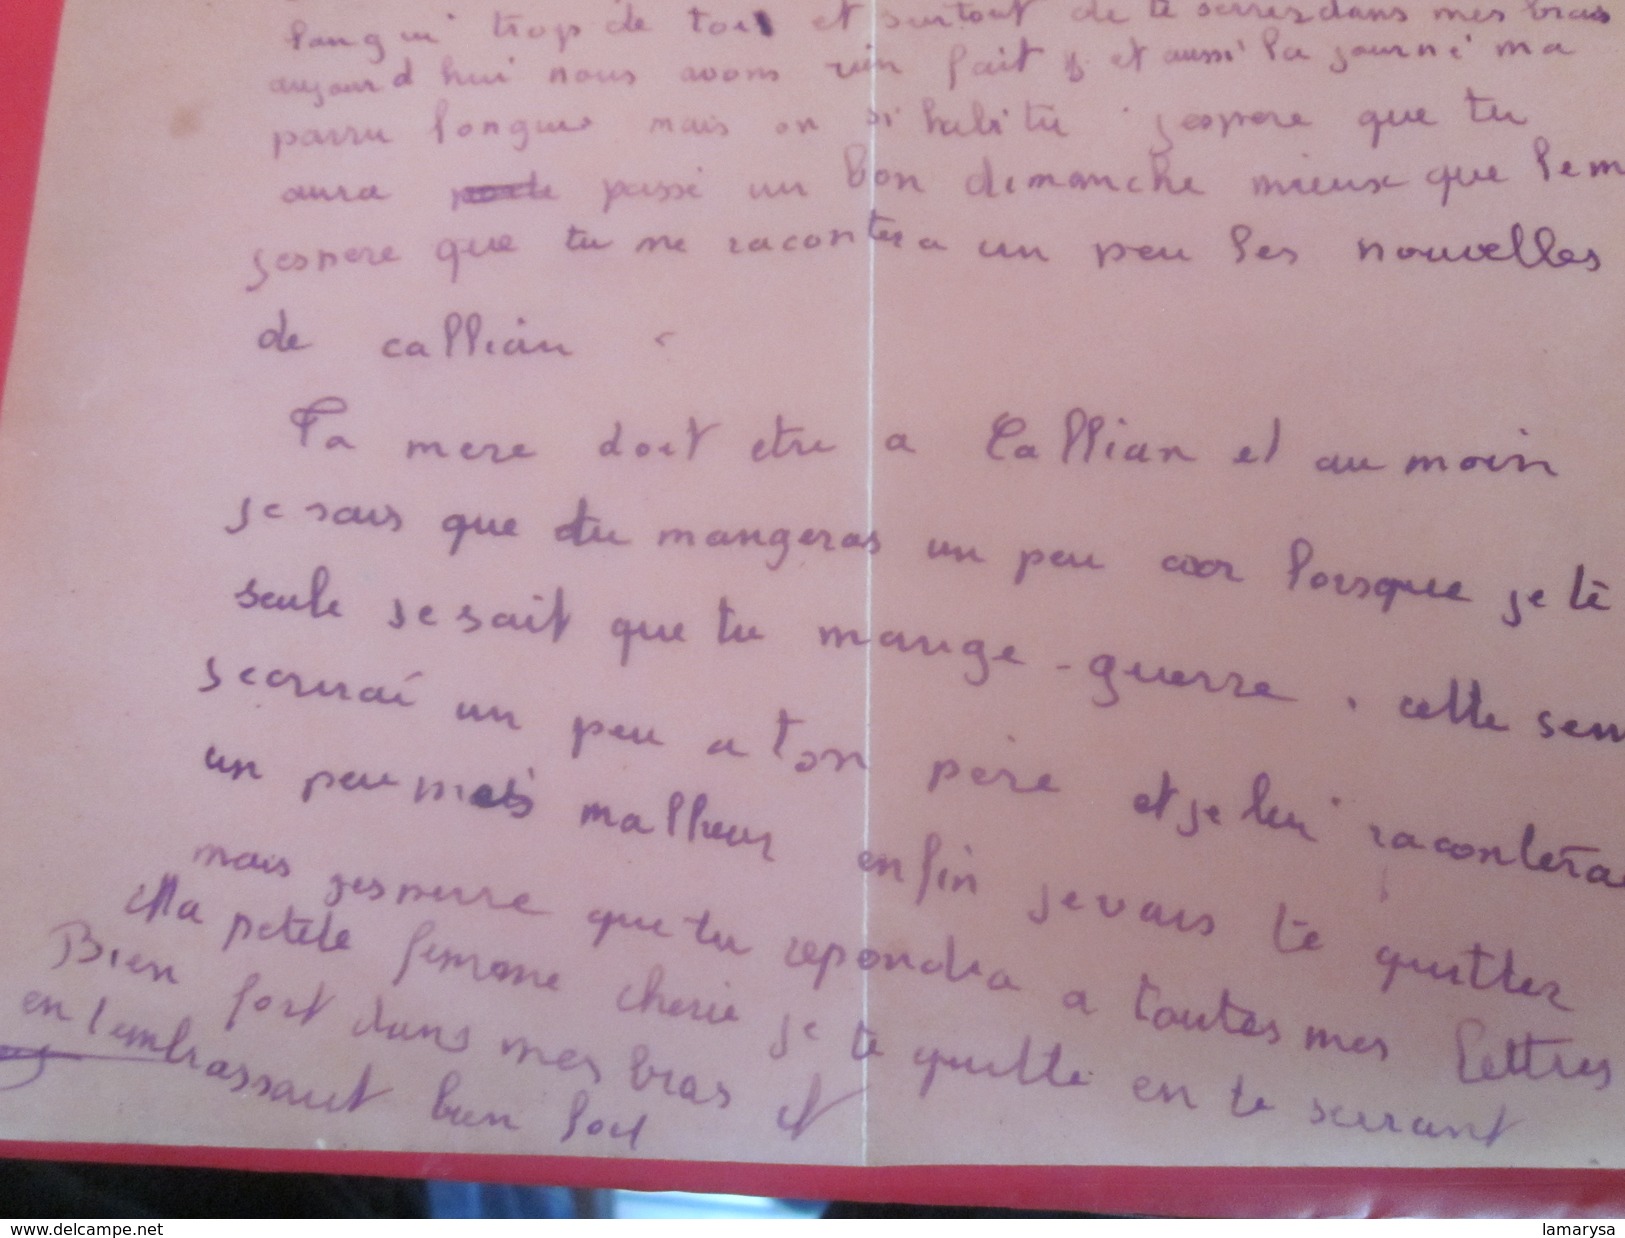 langui trop de toi et surtout de te serrer dans mes bras
aujourd hui nous avons rien fait et aussi la journé ma
parru longue mais on si habitu jespere que tu
aura passé un bon dimanche mieux que lem
jespere que tu me racontera un peu les nouvelles
de callian
Ta mere doit etre a Callian et au moin
je sais que tu mangeras un peu car lorsque je te
seule je sait que tu mange guerre. cette sem
jecrirai un peu a ton père et je lui racontera
un peu mes malheur enfin je vais te quitter
mais jesperre que tu repondra a toutes mes lettres
Ma petite femme cherie je te quitte en te serrant
Bien fort dans mes bras et
en t embrassant bien fort
www.delcampe.net
lamarysa